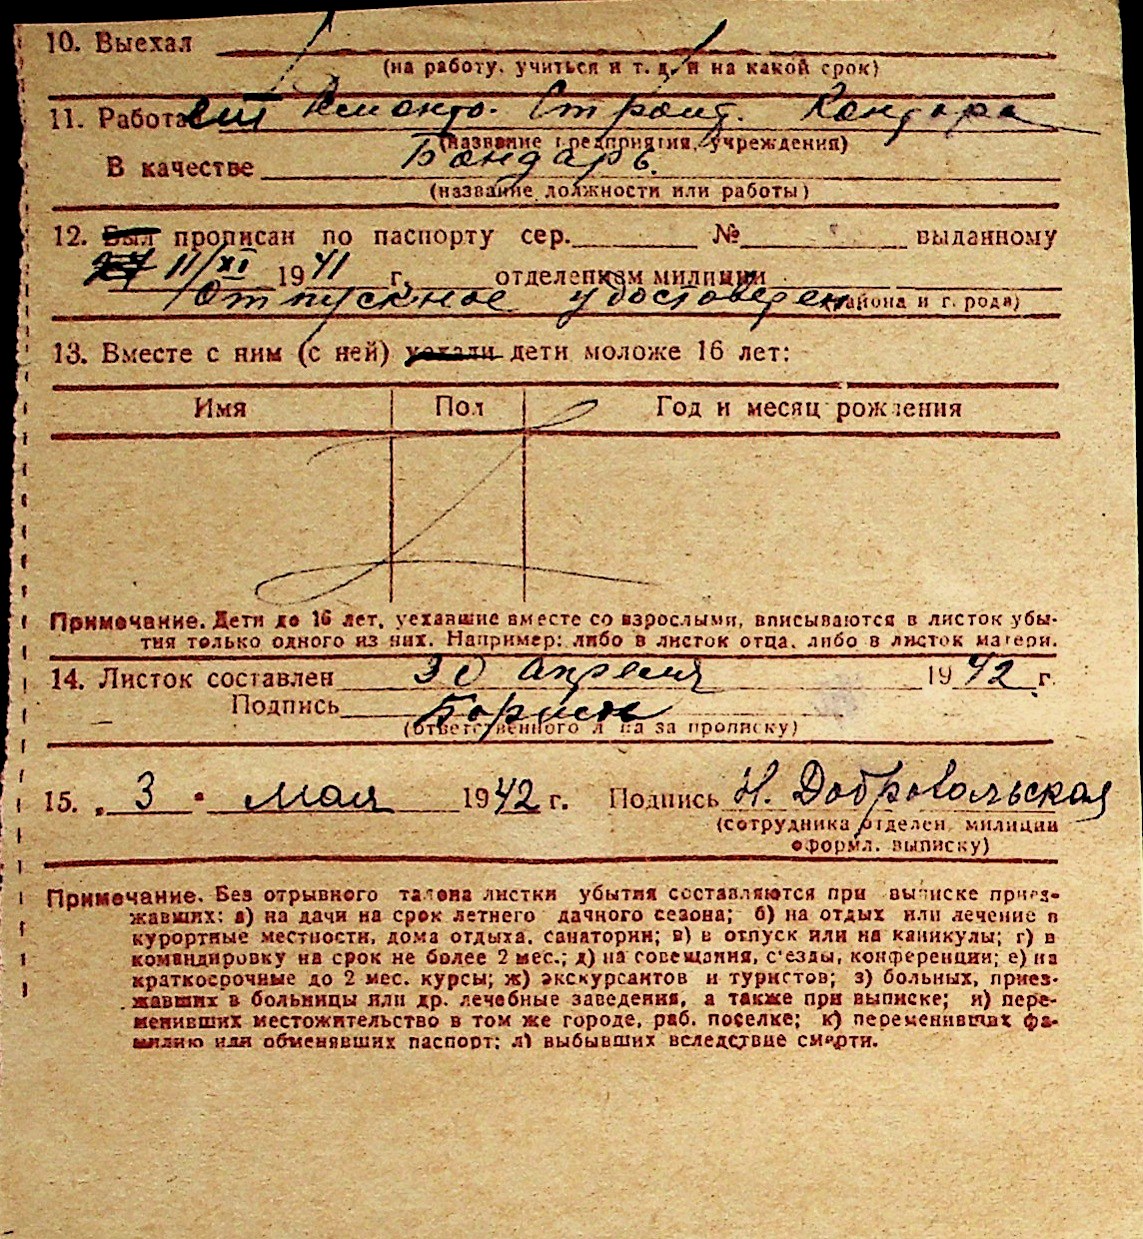 10. Выехал
(на работу, учиться и т. д. и на какой срок)
11. Работает Ремонто. Строит. Кантора
(название предприятия, учреждения)
В качестве Бондарь.
(название должности или работы)
12. Был прописан по паспорту сер. № выданному
11/XI 1941 г. отделением милиции
Отпускное удостоверен (района и г. рода)
13. Вместе с ним (с ней) уехали дети моложе 16 лет:
Имя Пол Год и месяц рождения
Примечание. Дети до 16 лет, уехавшие вместе со взрослыми, вписываются в листок убы-
тия только одного из них. Например: либо в листок отца, либо в листок матери.
14. Листок составлен 30 апреля 1942 г.
Подпись
(ответственного л ца за прописку)
15. „ 3 " мая 1942 г. Подпись Н. Добровольская
(сотрудника отделен. милиции
оформл. выписку)
Примечание. Без отрывного талона листки убытия составляются при выписке приез-
жавших: а) на дачи на срок летнего дачного сезона; б) на отдых или лечение в
курортные местности, дома отдыха, санатории; в) в отпуск или на каникулы; г) в
командировку на срок не более 2 мес.; д) на совещания, с'езды, конференции; е) на
краткосрочные до 2 мес. курсы; ж) экскурсантов и туристов; з) больных, приез-
жавших в больницы или др. лечебные заведения, а также при выписке; и) пере-
менивших местожительство в том же городе, раб. поселке; к) переменивших фа-
милию или обменявших паспорт; л) выбывших вследствие смерти.